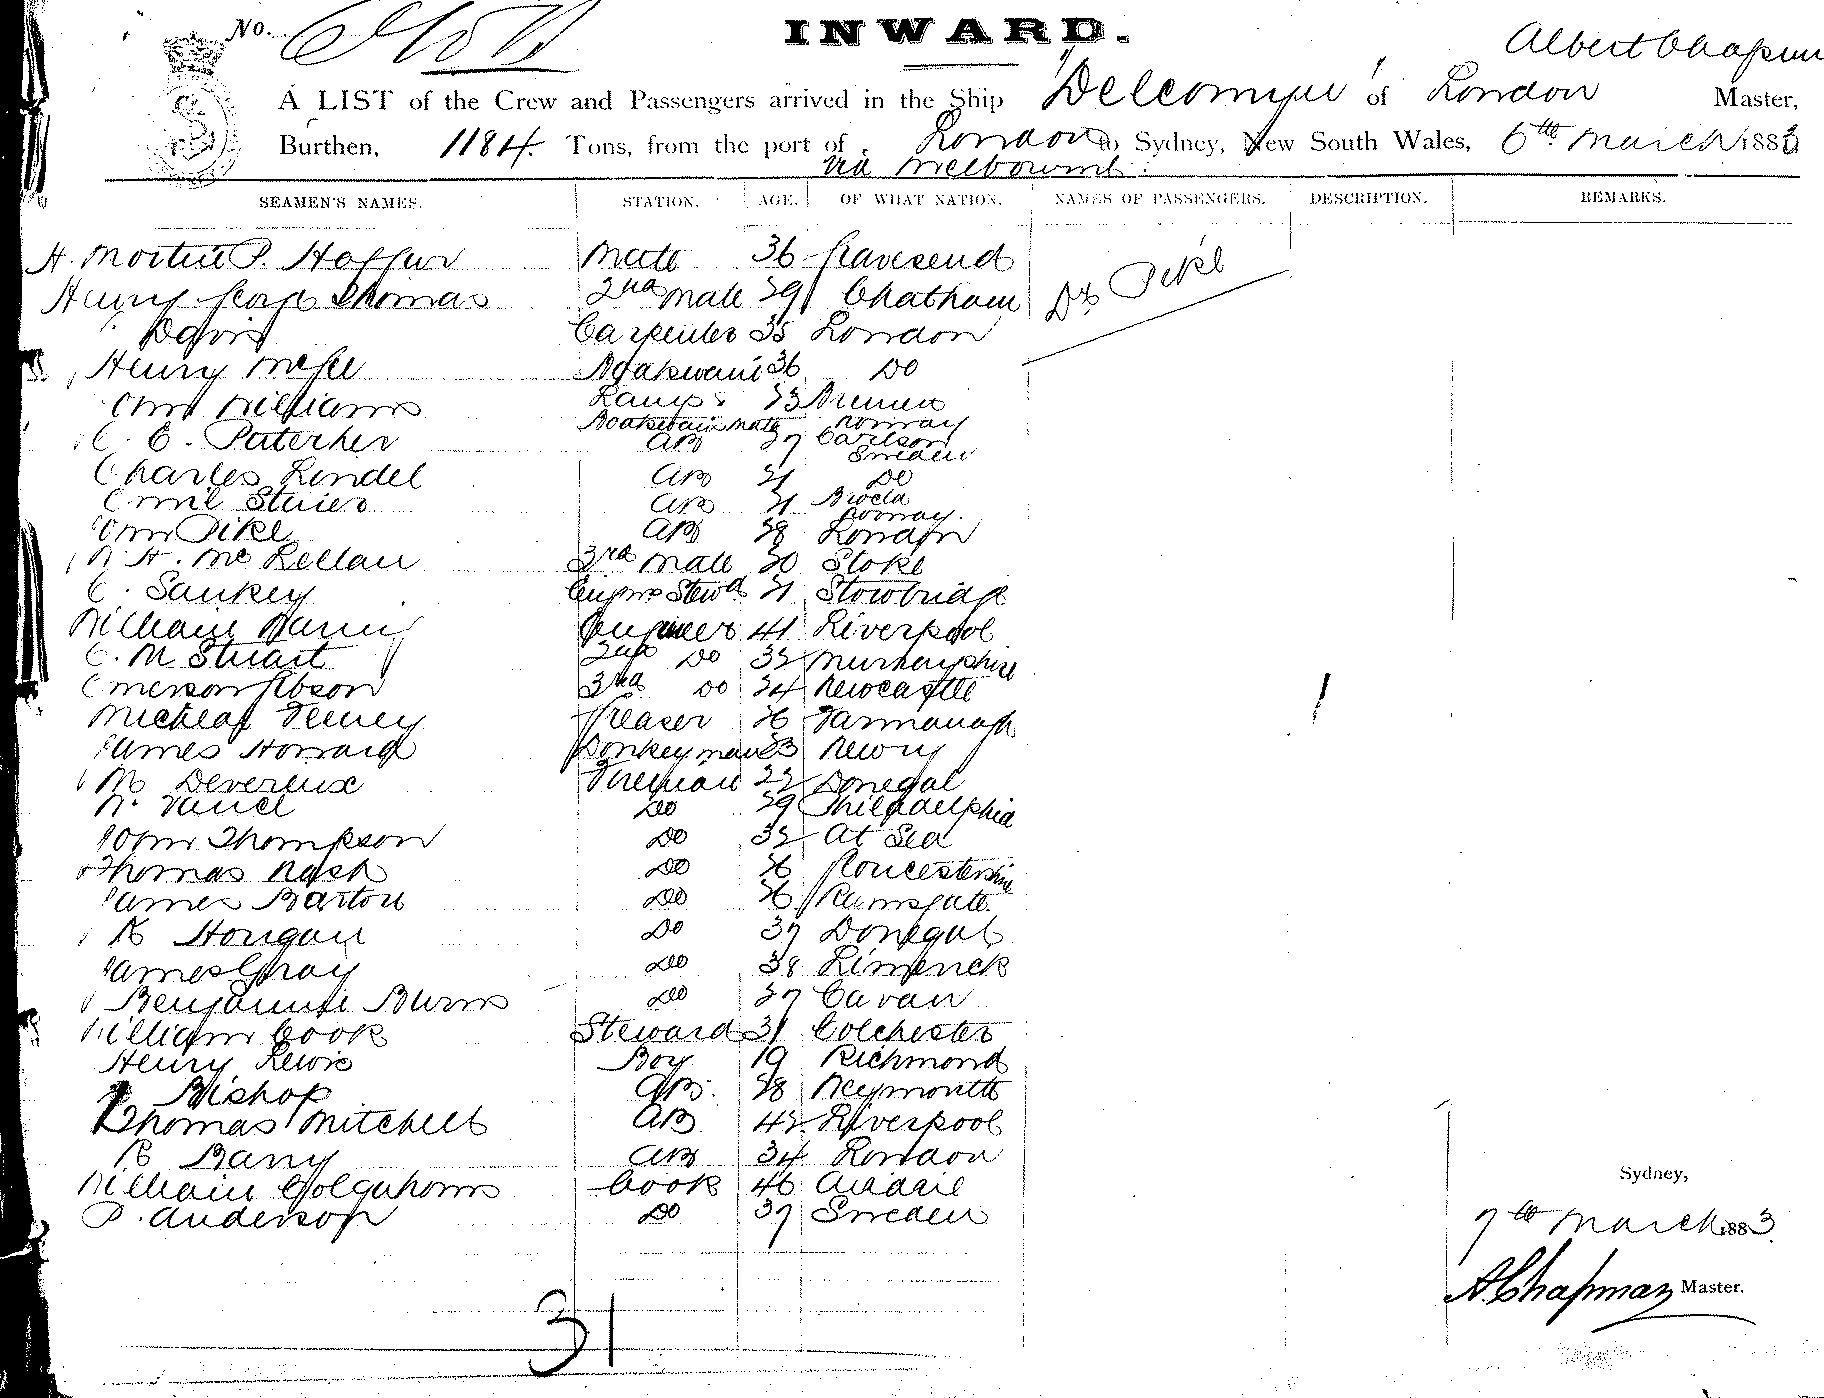 No.
INWARD.
Albert Chapman
A LIST of the Crew and Passengers arrived in the Ship "Delcomyn" of London Master,
Burthen, 1184 Tons, from the port of London to Sydney, New South Wales, 6th March 1883
via Melbourne.
SEAMEN'S NAMES. STATION. AGE. OF WHAT NATION. NAMES OF PASSENGERS. DESCRIPTION. REMARKS.
H. P. Mate 36 Gravesend
Henry George Thomas 2nd Mate 29 Chatham Dr Pike
Davis Carpenter 35 London
Henry 36 Do
Williams Lamps 23 Bremen
C. E. mate Norway
AB 27 Sweden
Charles Lindel AB 21 Do
Emil AB 21 Norway
John Pike AB 28 London
H. McLellan 3rd Mate 20 Stoke
C. Sankey Engnrs Stewd 21 Stowbridge
William Engineer 41 Liverpool
C. M Stuart 2nd Do 32
Emerson 3rd Do 24 Newcastle
Micheal Feeney Greaser 26 Farmanagh
James Howard Donkeyman 23 Newry
M Devereux Fireman 22 Donegal
W. Vance Do 29 Philadelphia
John Thompson Do 32 At Sea
Thomas Nash Do 26 Gloucestershire
James Barton Do 26 Ramsgate
Hougan Do 37 Donegal
James Gray Do 38 Limerick
Benjamin Burns Do 27 Cavan
William Cook Steward 31 Colchester
Henry Lewis Boy 19 Richmond
Bishop AB. 28 Weymouth
Thomas Mitchell AB 42 Liverpool
R Barry AB 34 London
William Colquhoun Cook 46 Airdrie
P. Anderson Do 37 Sweden
Sydney,
7th March 1883
A Chapman Master.
31